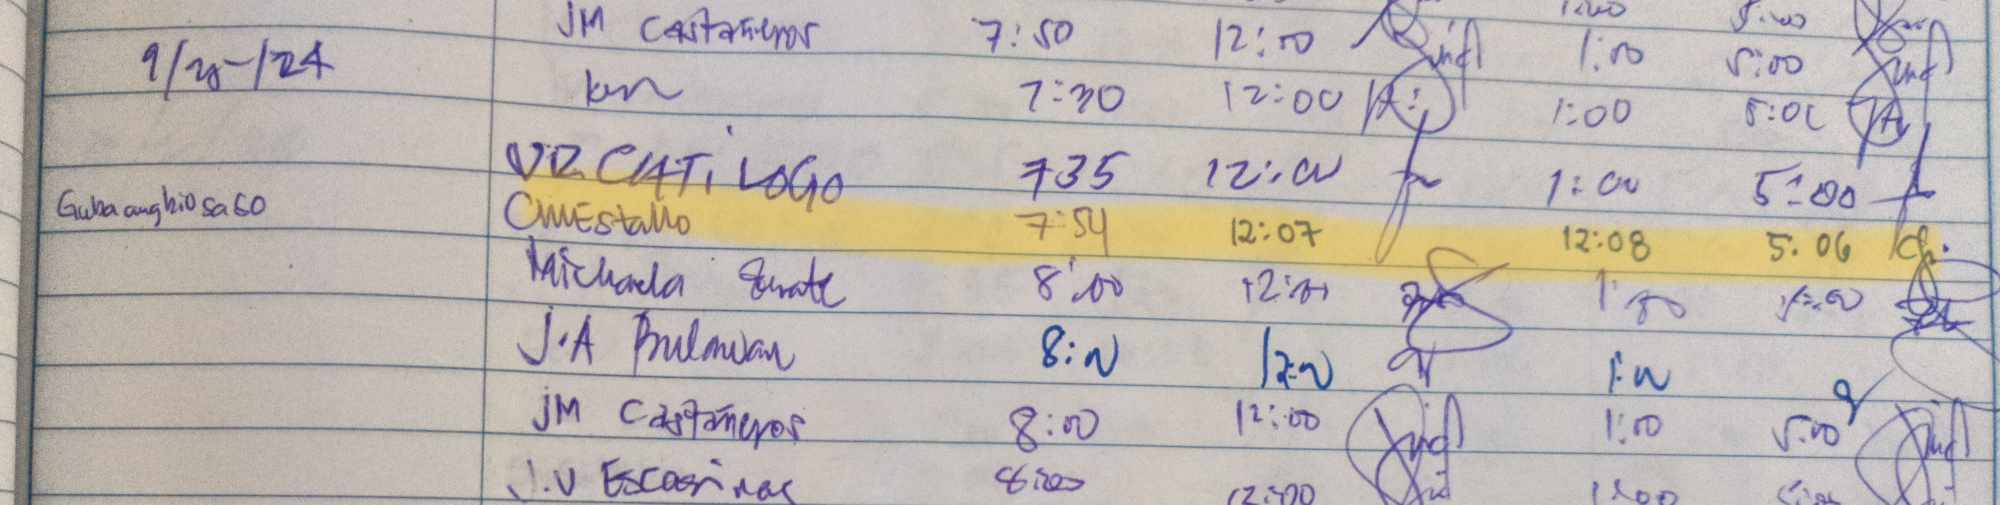 JM Castañeros 7:50 12:00 1:00 5:00
9/25/24
ken 7:30 12:00 1:00 5:00
VR CATILOGO 735 12:00 1:00 5:00
Guba ang bio sa GO
CMEstallo 7:54 12:07 12:08 5:06
Michaela 8:00 12:00 1:00 5:00
J.A Bulawan 8:00 12:00 1:00
JM Castañeros 8:00 12:00 1:00 5:00
J.V Escasinas 8:00 12:00 1:00